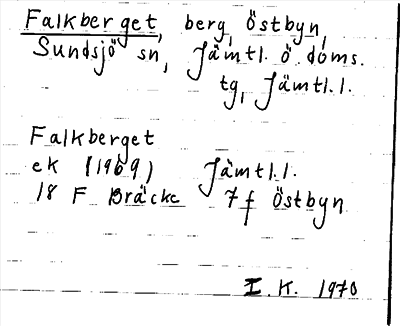 Falkberget, berg, Östbyn,
Sundsjö sn, Jämtl. ö. doms.
tg, Jämtl.l.
Falkberget
ek (1969) Jämtl.l.
18 F Bräcke 7f Östbyn
I.K. 1970